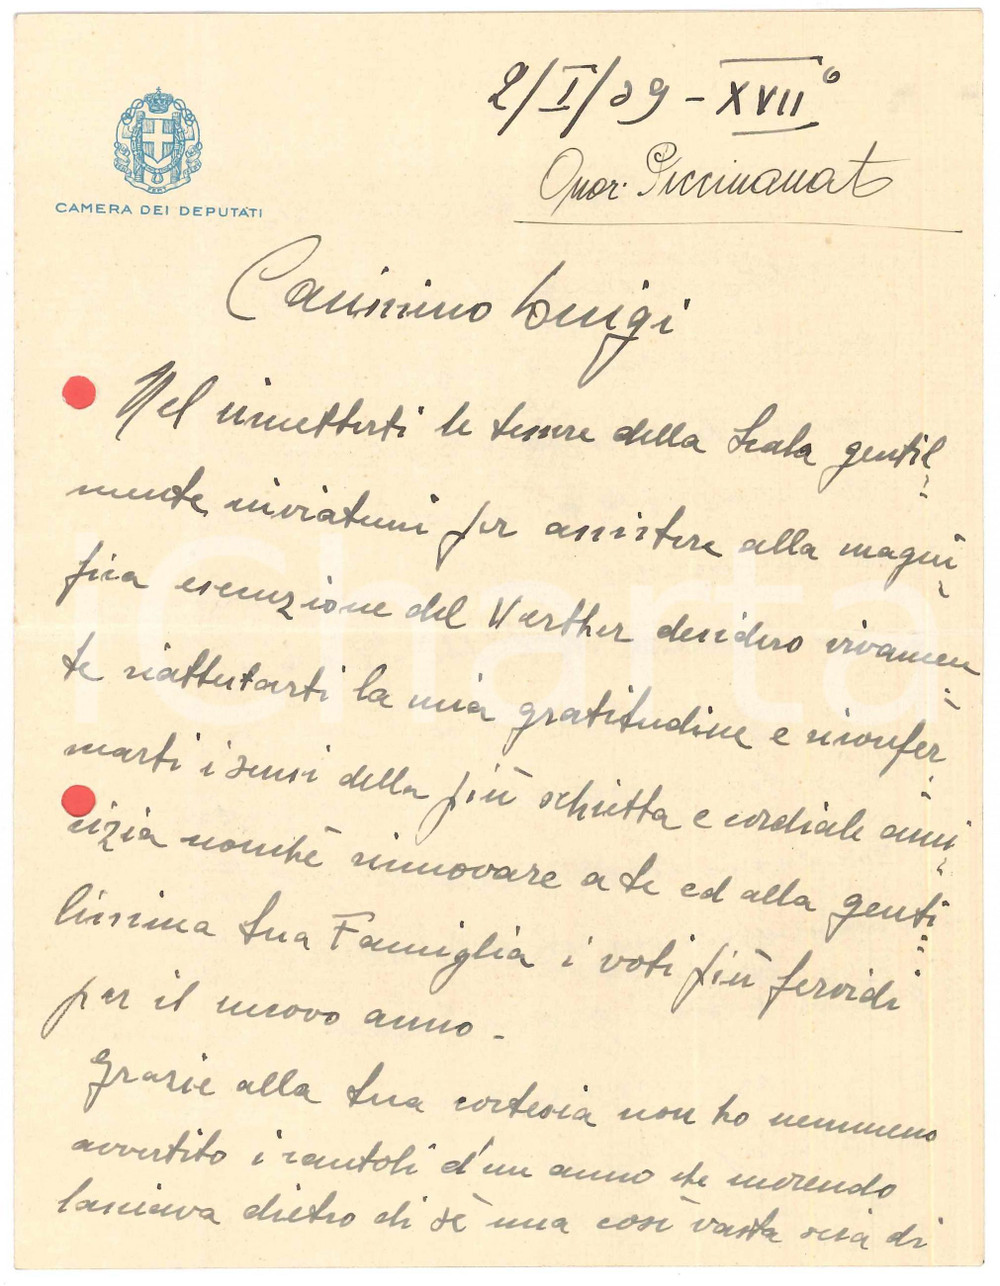 2/I/39 - XVII°
Onor. Piccinanat
CAMERA DEI DEPUTATI
Carissimo Luigi
Nel rimetterti le tessere della Scala gentil
mente inviatemi per assistere alla magni
fica esecuzione del Werther desidero vivamen
te riattestarti la mia gratitudine e riconfer
marti i sensi della più schietta e cordiale ami
cizia nonchè rinnovare a te ed alla genti
lissima tua Famiglia i voti più fervidi
per il nuovo anno -
Grazie alla tua cortesia non ho nemmeno
avvertito i rantoli d'un anno che morendo
lasciava dietro di sè una così vasta scia di
iCharta